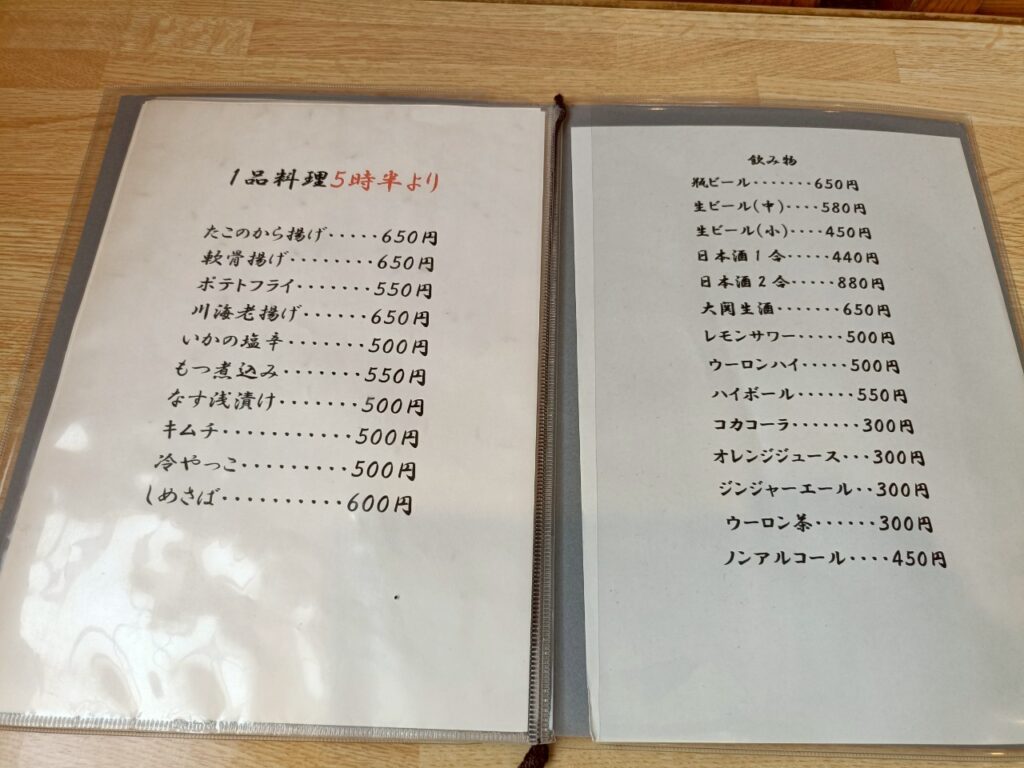 1品料理5時半より
たこのから揚げ・・・・・650円
軟骨揚げ・・・・・・・・650円
ポテトフライ・・・・・・・550円
川海老揚げ・・・・・・・650円
いかの塩辛・・・・・・・・500円
もつ煮込み・・・・・・・・550円
なす浅漬け・・・・・・・・500円
キムチ・・・・・・・・・・・500円
冷やっこ・・・・・・・・・500円
しめさば・・・・・・・・・・600円
飲み物
瓶ビール・・・・・・・650円
生ビール(中)・・・・580円
生ビール(小)・・・・450円
日本酒1合・・・・・440円
日本酒2合・・・・・880円
大関生酒・・・・・・・650円
レモンサワー・・・・・500円
ウーロンハイ・・・・・500円
ハイボール・・・・・・550円
コカコーラ・・・・・・・300円
オレンジジュース・・・300円
ジンジャーエール・・300円
ウーロン茶・・・・・・300円
ノンアルコール・・・・450円